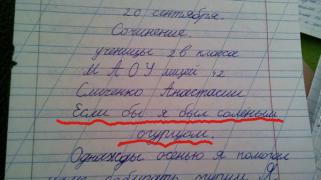 20 сентября.
Сочинение.
ученицы 2в класса
МАОУ лицей 42
Сличенко Анастасии
Если бы я был соленым
огурцом.
Однажды осенью я помогал
собирать огурцы. Я